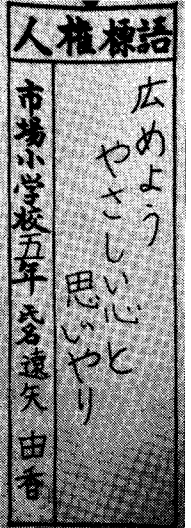 人権標語
広めよう
やさしい心と
思いやり
市場小学校五年 氏名 遠矢 由香